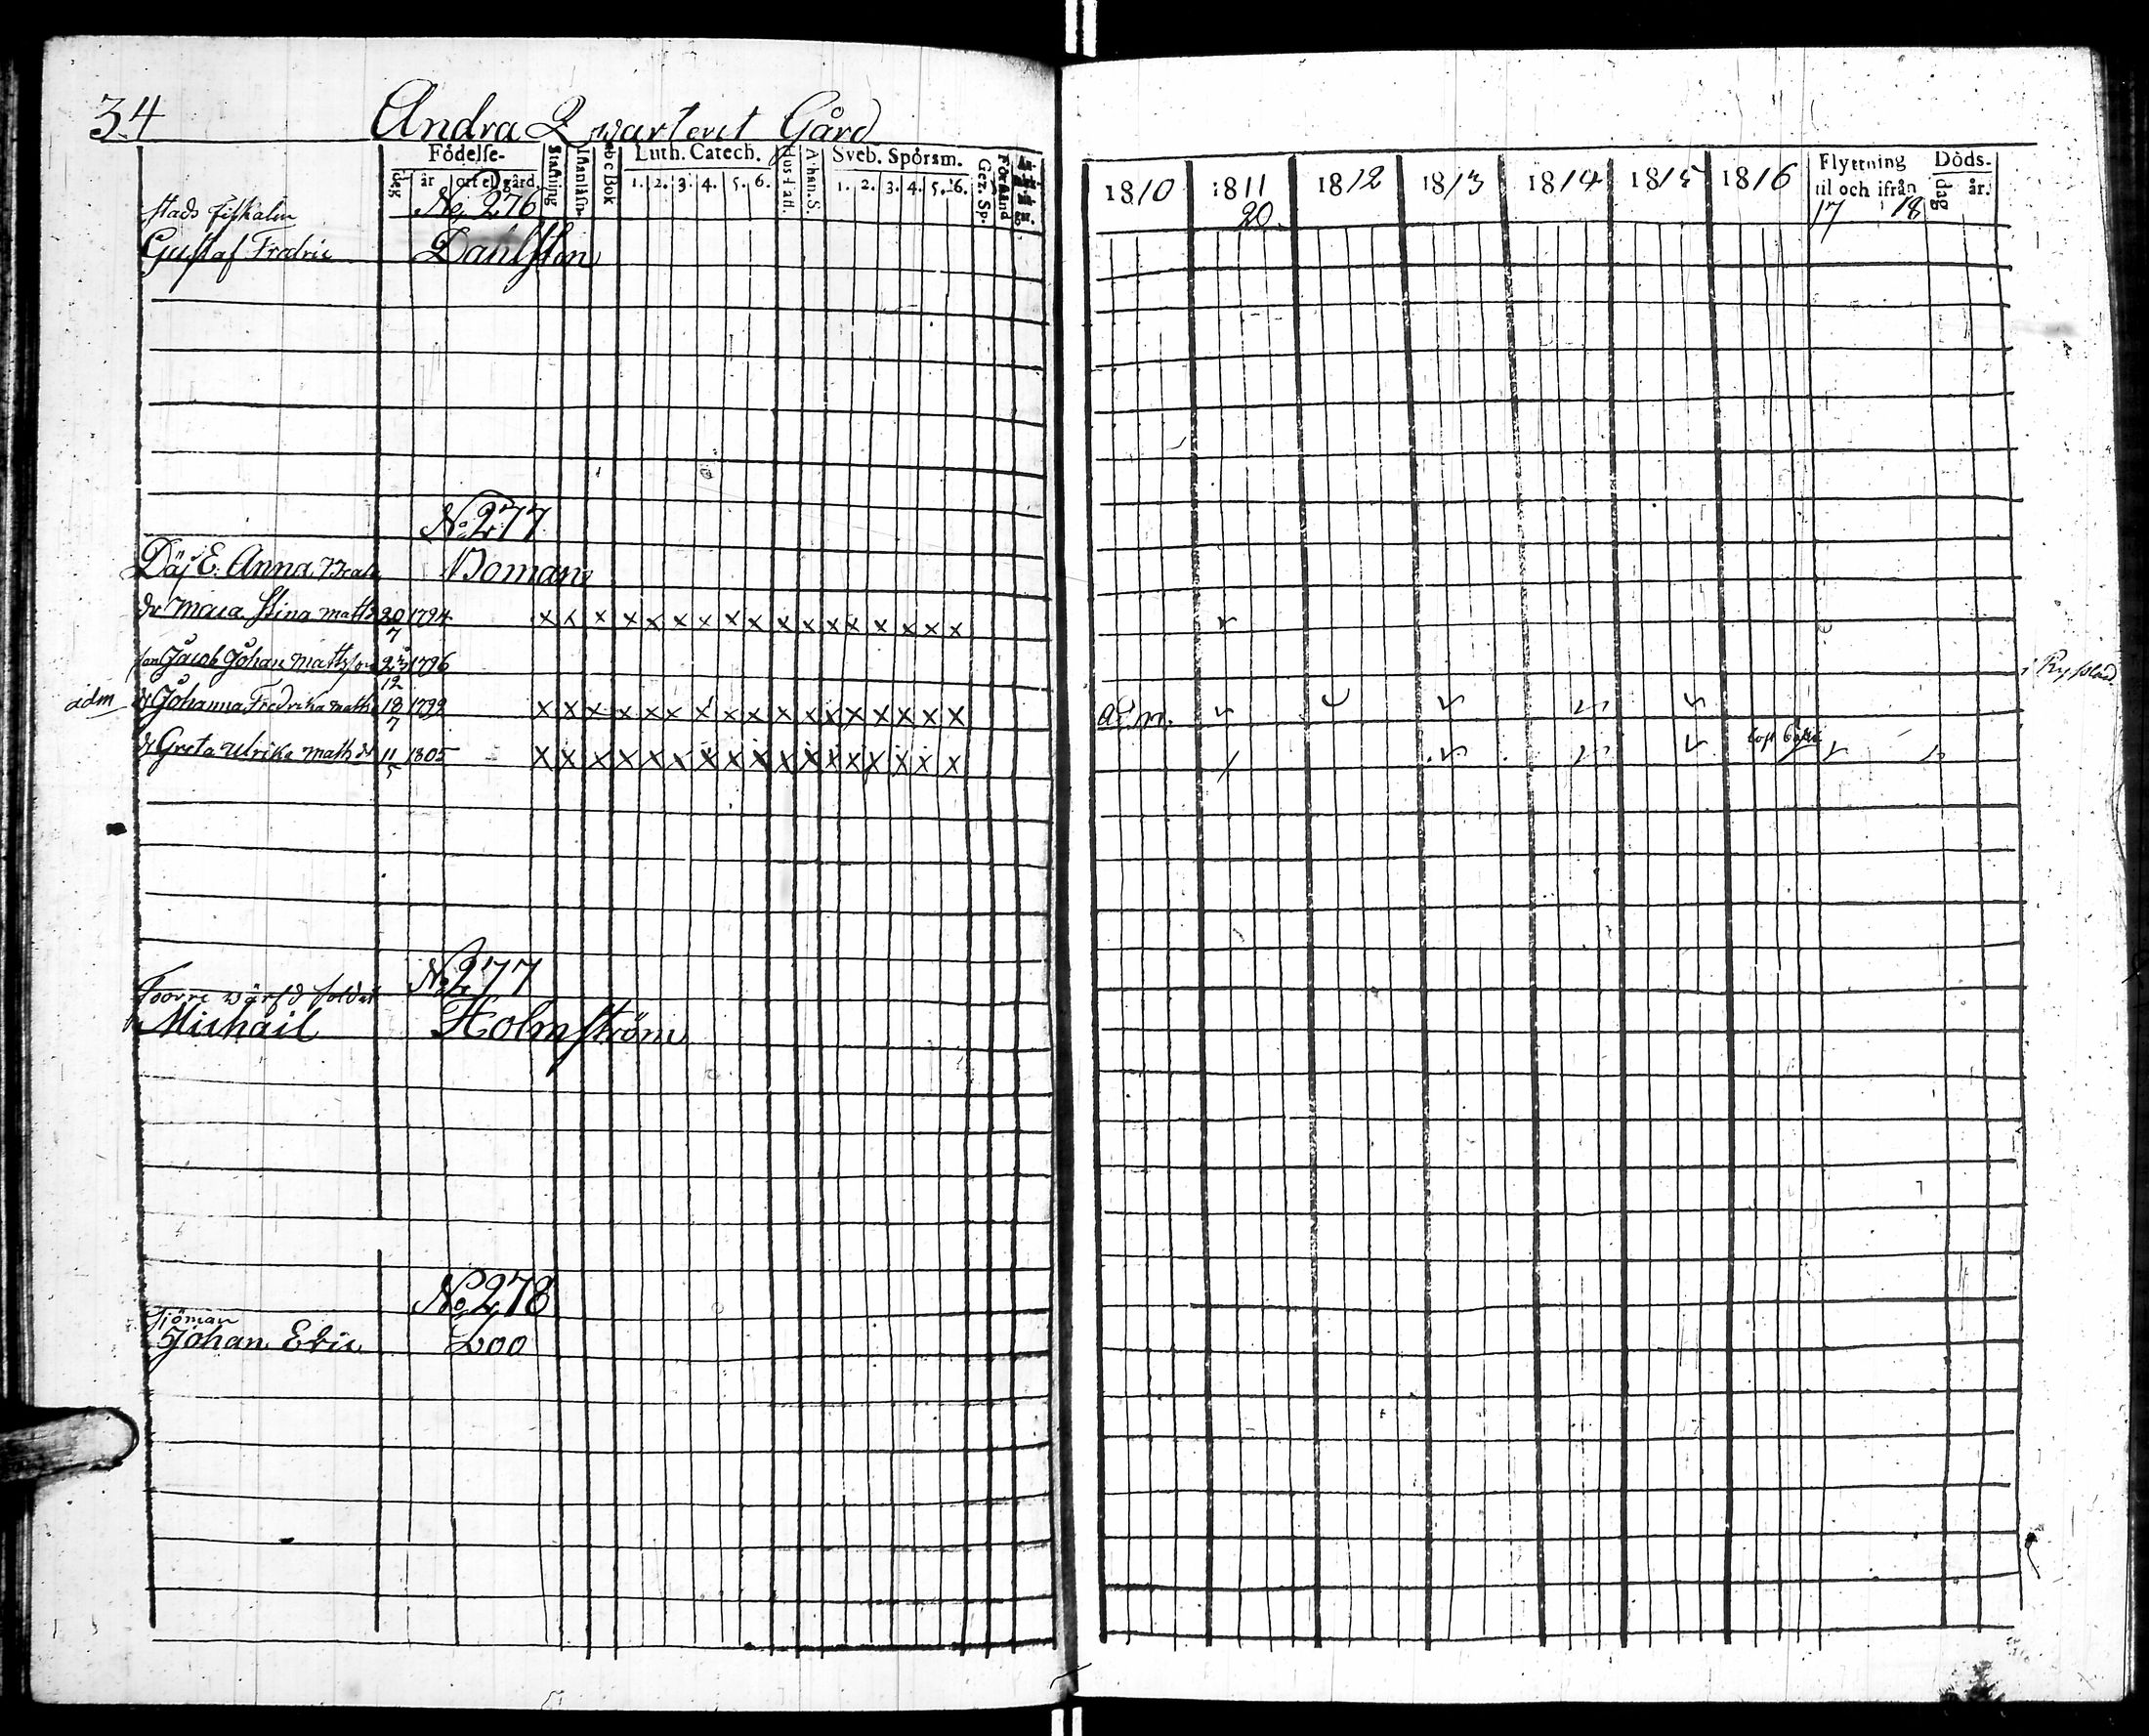 34 Andra Qwarteret Gård
Födelse- Stafning Luth. Catech. Sveb. Spörsm. Gez. Sp. Förstånd
dag år ort el. gård Bok 1. 2. 3. 4. 5. 6. 1. 2. 3. 4. 5. 6.
1810 1811 1812 1813 1814 1815 1816 Flyttning til och ifrån Döds- dag år.
20. 17 18
No 276
Stads fiskalen
Gustaf Fredric Dahlsten
No 277
E. Anna Boman
dr Maia Stina Matts 20/7 1794 x x x x x x x x x x x x x x x x x
son Jacob Johan Mattsson 1796
adm dr Johanna Fredrika Matts 18/7 1799 x x x x x x x x x x x x x x x x x adm.
dr Greta Ulrika Matts dr 11/5 1805 x x x x x x x x x x x x x x x x x
No 277
Michail Holmström
No 278
Sjöman
Johan Eric Loo